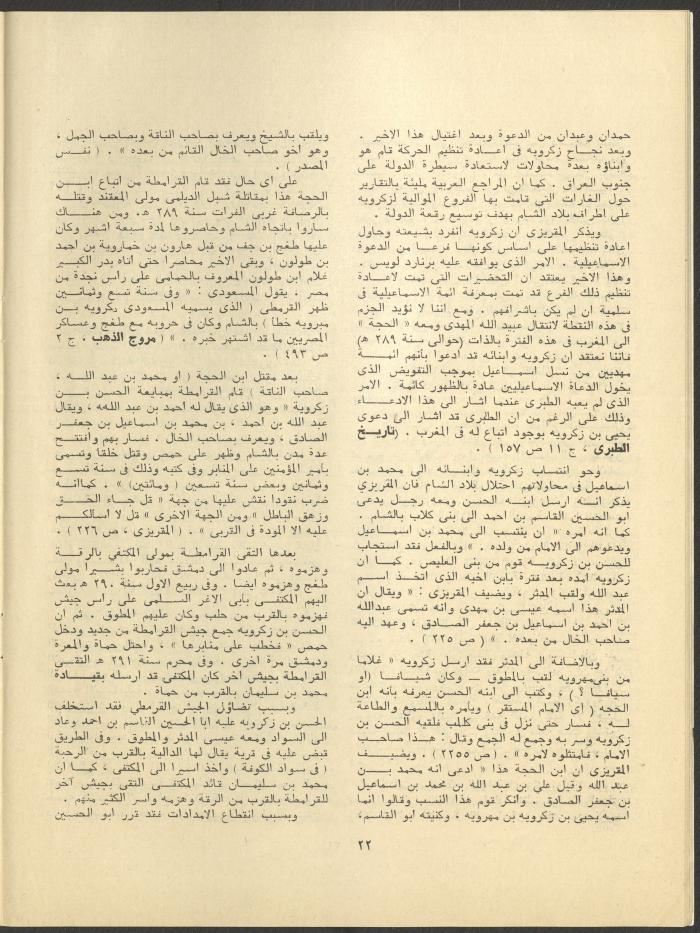 حمدان وعبدان من الدعوة وبعد اغتيال هذا الاخير .
وبعد نجاح زكرويه فى اعادة تنظيم الحركة قام هو
وابناؤه بعدة محاولات لاستعادة سيطرة الدولة على
جنوب العراق . كما ان المراجع العربية مليئة بالتقارير
حول الغارات التى قامت بها الفروع الموالية لزكرويه
على اطراف بلاد الشام بهدف توسيع رقعة الدولة .
ويذكر المقريزى ان زكرويه انفرد بشيعته وحاول
اعادة تنظيمها على اساس كونها فرعا من الدعوة
الاسماعيلية . الامر الذى يوافقه عليه برنارد لويس .
وهذا الاخير يعتقد ان التحضيرات التى تمت لاعادة
تنظيم ذلك الفرع قد تمت بمعرفة ائمة الاسماعيلية فى
سلمية ان لم يكن باشرافهم . ومع اننا لا نؤيد الجزم
فى هذه النقطة لانتقال عبيد الله المهدى ومعه « الحجة »
الى المغرب فى هذه الفترة بالذات (حوالى سنة ٢٨٩ هـ)
فاننا نعتقد ان زكرويه وابنائه قد ادعوا بأنهم ائمة
مهديين من نسل اسماعيل بموجب التفويض الذى
يخول الدعاة الاسماعيليين عادة بالظهور كائمة . الامر
الذى لم يعيه الطبرى عندما اشار الى هذا الادعاء
وذلك على الرغم من ان الطبرى قد اشار الى دعوى
يحيى بن زكرويه بوجود اتباع له فى المغرب . (تاريخ
الطبرى ، ج ١١ ص ١٥٧ ) .
وحو انتساب زكرويه وابنائه الى محمد بن
اسماعيل فى محاولاتهم احتلال بلاد الشام فان المقريزى
يذكر انه ارسل ابنه الحسن ومعه رجل يدعى
ابو الحسين القاسم بن احمد الى بنى كلاب بالشام .
كما انه امره « ان ينتسب الى محمد بن اسماعيل
ويدعوهم الى الامام من ولده . » وبالفعل فقد استجاب
للحسن بن زكرويه قوم من بنى العليص . كما ان
زكرويه امده بعد فترة بابن اخيه الذى اتخذ اسم
عبد الله ولقب المدثر ، ويضيف المقريزى : « ويقال ان
المدثر هذا اسمه عيسى بن مهدى وانه تسمى عبدالله
بن احمد بن اسماعيل بن جعفر الصادق ، وعهد اليه
صاحب الخال من بعده . » ( ص ٢٢٥ ) .
وبالاضافة الى المدثر فقد ارسل زكرويه « غلاما
من بنى مهرويه لقب بالمطوق — وكان شيافا (او
سيافا ؟ ) ، وكتب الى ابنه الحسن يعرفه بانه ابن
الحجه ( اى الامام المستقر ) ويامره بالسمع والطاعة
له ، فسار حتى نزل فى بنى كلب فلقيه الحسن بن
زكرويه وسر به وجمع له الجمع وقال : هذا صاحب
الامام ، فامتثلوه لامره » . ( ص ٢٢٥٥ ) . ويضيف
المقريزى ان ابن الحجة هذا « ادعى انه محمد بن
عبد الله وقيل على بن عبد الله بن محمد بن اسماعيل
بن جعفر الصادق . وانكر قوم هذا النسب وقالوا انما
اسمه يحيى بن زكرويه بن مهرويه ، وكنيته ابو القاسم،
ويلقب بالشيخ ويعرف بصاحب الناقة وبصاحب الجمل ،
وهو اخو صاحب الخال القائم من بعده » . ( نفس
المصدر ) .
على اى حال فقد قام القرامطة من اتباع ابن
الحجة هذا بمقاتلة شبل الديلمى مولى المعقتد وقتله
بالرصافة غربى الفرات سنة ٢٨٩ هـ. ومن هناك
ساروا باتجاه الشام وحاصروها لمدة سبعة اشهر وكان
عليها طغج بن جف من قبل هارون بن خماروية بن احمد
بن طولون ، وبقى الاخير محاصرا حتى اتاه بدر الكبير
غلام ابن طولون المعروف بالحمامى على راس نجدة من
مصر . يقول المسعودى : « وفى سنة تسع وثمانين
ظهر القرمطى ( الذى يسميه المسعودى ركرويه بن
مبرويه خطأ ) بالشام وكان فى حروبه مع طغج وعساكر
المصريين ما قد اشتهر خبره . » ( مروج الذهب ، ج ٢
ص ٤٩٣ ) .
بعد مقتل ابن الحجة ( او محمد بن عبد الله ،
صاحب الناقة ) قام القرامطة بمبايعة الحسن بن
زكروية « وهو الذى يقال له احمد بن عبد الله ، ويقال
عبد الله بن احمد ، بن محمد بن اسماعيل بن جعفر
الصادق ، ويعرف بصاحب الخال . فسار بهم وافتتح
عدة مدن بالشام وظهر على حمص وقتل خلقا وتسمى
بامير المؤمنين على المنابر وفى كتبه وذلك فى سنة تسع
وثمانين وبعض سنة تسعين ( ومائتين) » . كما انه
ضرب نقودا نقش عليها من جهة « قل جاء الحق
وزهق الباطل » ومن الجهة الاخرى « قل لا اسالكم
عليه الا المودة فى القربى » . ( المقريزى ، ص ٢٢٦ ) .
بعدها التقى القرامطة بمولى المكتفي بالرقة
وهزموه ، ثم عادوا الى دمشق فحاربوا بشيرا مولى
طغج وهزموه ايضا . وفى ربيع الاول سنة ٢٩٠ هـ بعث
اليهم المكتفى بابى الاغر السلمى على راس جيش
فهزموه بالقرب من حلب وكان عليهم المطوق . ثم ان
الحسن بن زكرويه جمع جيش القرامطة من جديد ودخل
حمص « فخطب على منابرها » ، واحتل حماة والمعرة
ودمشق مرة اخرى . وفى محرم سنة ٢٩١ هـ التقى
القرامطة بجيش اخر كان المكتفى قد ارسله بقيادة
محمد بن سليمان بالقرب من حماة .
وبسبب تضاؤل الجيش القرمطي فقد استخلف
الحسن بن زكرويه عليه ابا الحسين القاسم بن احمد وعاد
الى السواد ومعه عيسى المدثر والمطوق . وفى الطريق
قبض عليه فى قرية يقال لها الدالية بالقرب من الرحبة
( فى سواد الكوفة ) واخذ اسيرا الى المكتفى ، كما ان
محمد بن سليمان قائد المكتفى التقى بجيش آخر
للقرامطة بالقرب من الرقة وهزمه واسر الكثير منهم .
وبسبب انقطاع الامدادات فقد قرر ابو الحسين
٢٢